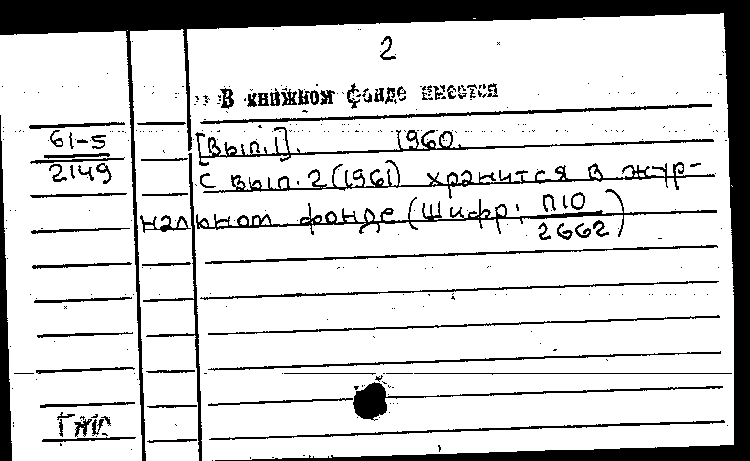 2
В книжном фонде имеется
61-5 [Вып.1]. 1960.
2149 С вып. 2 (1961) хранится в жур-
нальном фонде (Шифр: П10
2662)